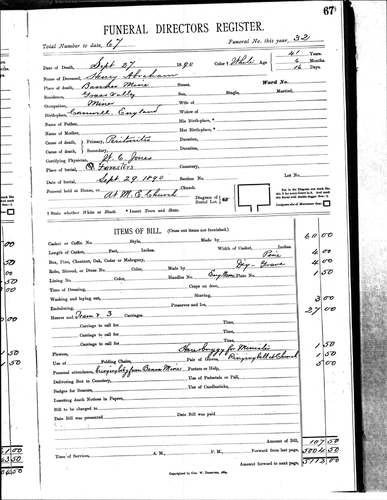 67
FUNERAL DIRECTORS REGISTER.
Total Number to date, 67 Funeral No. this year, 32
Date of Death, Sept 27 1890 Color † White Age 41 Years.
6 Months.
16 Days.
Name of Deceased, Abraham
Place of death, Banker Mine Street, Ward No.
Residence, Grass Valley Sex, Single, Married,
Occupation, Miner Wife of
Birthplace, Cornwall, England Widow of
Name of Father, His Birthplace, *
Name of Mother, Her Birthplace, *
Cause of death, Primary, Peritonitis Duration,
Cause of death, Secondary, Duration,
Certifying Physician, W. C. Jones
Place of burial, Foresters Cemetery,
Date of burial, Sept 29 1890 Section No. Lot No.
Funeral held at House, At M. E. Church Church. Diagram of Burial Lot.
† State whether White or Black. * Insert Town and State.
ITEMS OF BILL. (Cross out items not furnished.)
Casket or Coffin No. Style, Made by 60 00
Length of Casket, Feet, Inches. Width of Casket, Inches.
Box, Pine, Chestnut, Oak, Cedar or Mahogany, Pine 4 00
Robe, Shroud, or Dress No. Color, Made by Dig. Grave 4 00
Lining No. Color, Handles No. Plate No. 1 50
Time of Dressing, Date,
Care on drape,
Washing and laying out, Shaving, 3 00
Embalming, Preserver and Ice,
Hearse and Team & 3 Time, 27 00
Carriage to call for Time,
Carriage to call for Time,
Carriage to call for Time,
Carriage to call for Time,
Flowers, buggy for Minister 1 50
Use of Folding Chairs, Pair of Gloves, Ringing bell at Church 1 50
Personal attendance, bringing body from Mine Porters or Help, 5 00
Delivering Box to Cemetery, Use of Pedestals or Pall,
Badges for Bearers, Use of Candlesticks,
Inserting death Notices in Papers,
Bill to be charged to
Date Bill was presented Date Bill was paid
Amount of Bill, 107 50
Time of Services, A. M. P. M. Forward from last page, 5004 50
Amount forward to next page, 5113 00